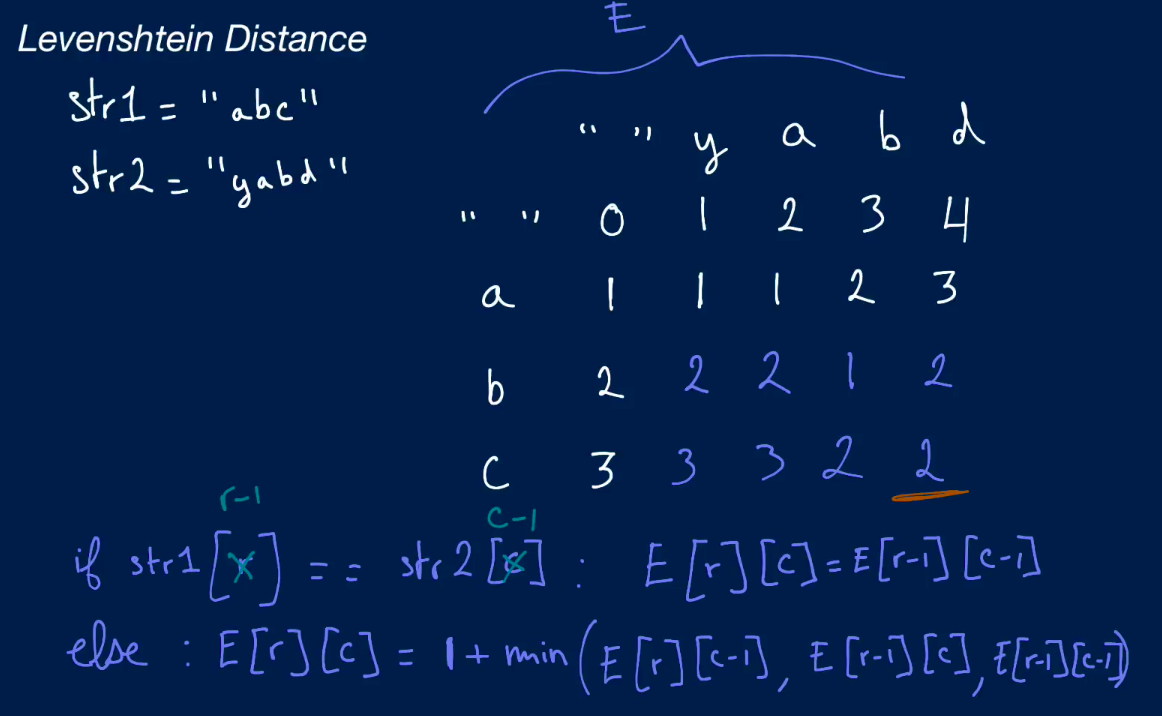 Levenshtein Distance
str1 = "abc"
str2 = "yabd"
E
" " y a b d
" " 0 1 2 3 4
a 1 1 1 2 3
b 2 2 2 1 2
c 3 3 3 2 2
r-1 c-1
if str1[r] == str2[c] : E[r][c]=E[r-1][c-1]
else : E[r][c] = 1+ min(E[r][c-1], E[r-1][c], E[r-1][c-1])